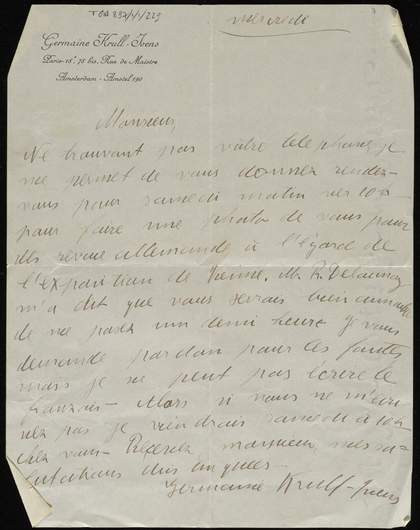 TGA 897/1/1/229
mercredi
Germaine Krull-Ivens
Paris-18e, 75 bis, Rue de Maistre
Amsterdam - Amstel 190
Monsieur,
Ne trouvant pas vôtre telephone je
me permet de vous donner rendez-
vous pour samedi matin vers 10h
pour faire une photo de vous pour
des revue allemande à l'égard de
l'exposition de Vienne. M. R. Delaunay
m'a dit que vous serais bien
de me poser un demi heure je vous
demande pardon pour les fautes
mais je ne peut pas écrire le
français - Alors si vous ne
pas je viendrais samedi à 10h
chez vous. Recevez, monsieur, mes sa-
lutations
Germaine Krull-Ivens